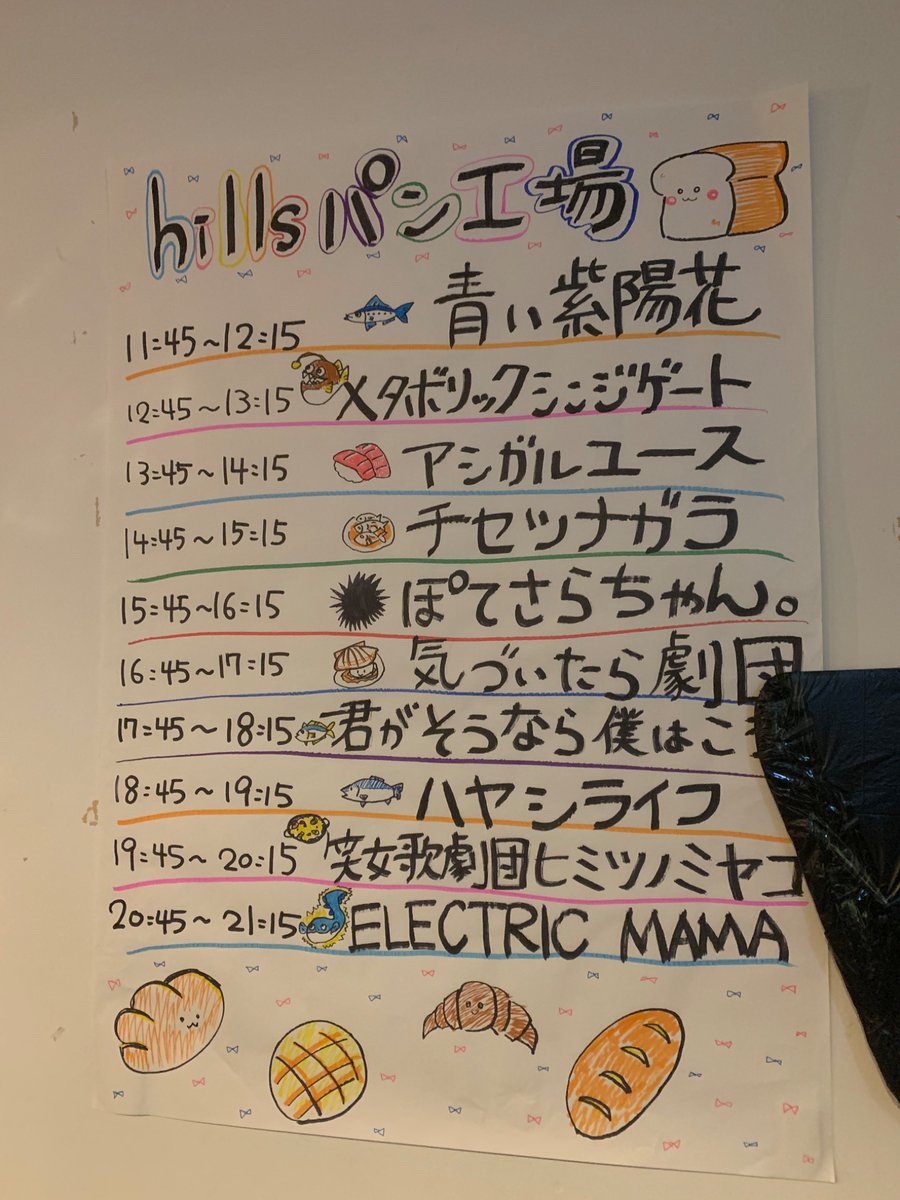 hillsパン工場
11:45~12:15 青い紫陽花
12:45~13:15 メタボリックシンジゲート
13:45~14:15 アシガルユース
14:45~15:15 チセツナガラ
15:45~16:15 ぽてさらちゃん。
16:45~17:15 気づいたら劇団
17:45~18:15 君がそうなら僕はこ
18:45~19:15 ハヤシライフ
19:45~20:15 笑女歌劇団ヒミツノミヤコ
20:45~21:15 ELECTRIC MAMA